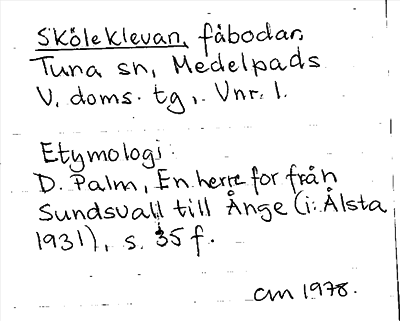 Sköleklevan, fäbodar,
Tuna sn, Medelpads
V. doms. tg, Vnr. 1.
Etymologi:
D. Palm, En herre for från
Sundsvall till Ånge (i: Ålsta
1931), s. 35 f.
cm 1978.